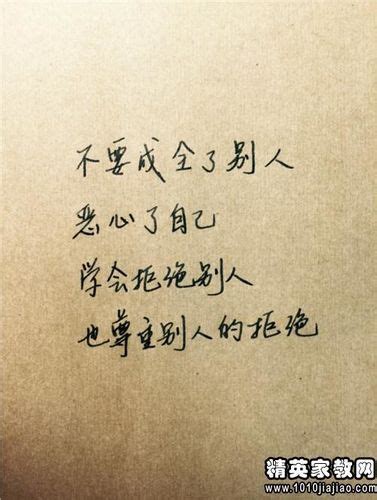 不要成全了别人
恶心了自己
学会拒绝别人
也尊重别人的拒绝
精英家教网
www.1010jiajiao.com